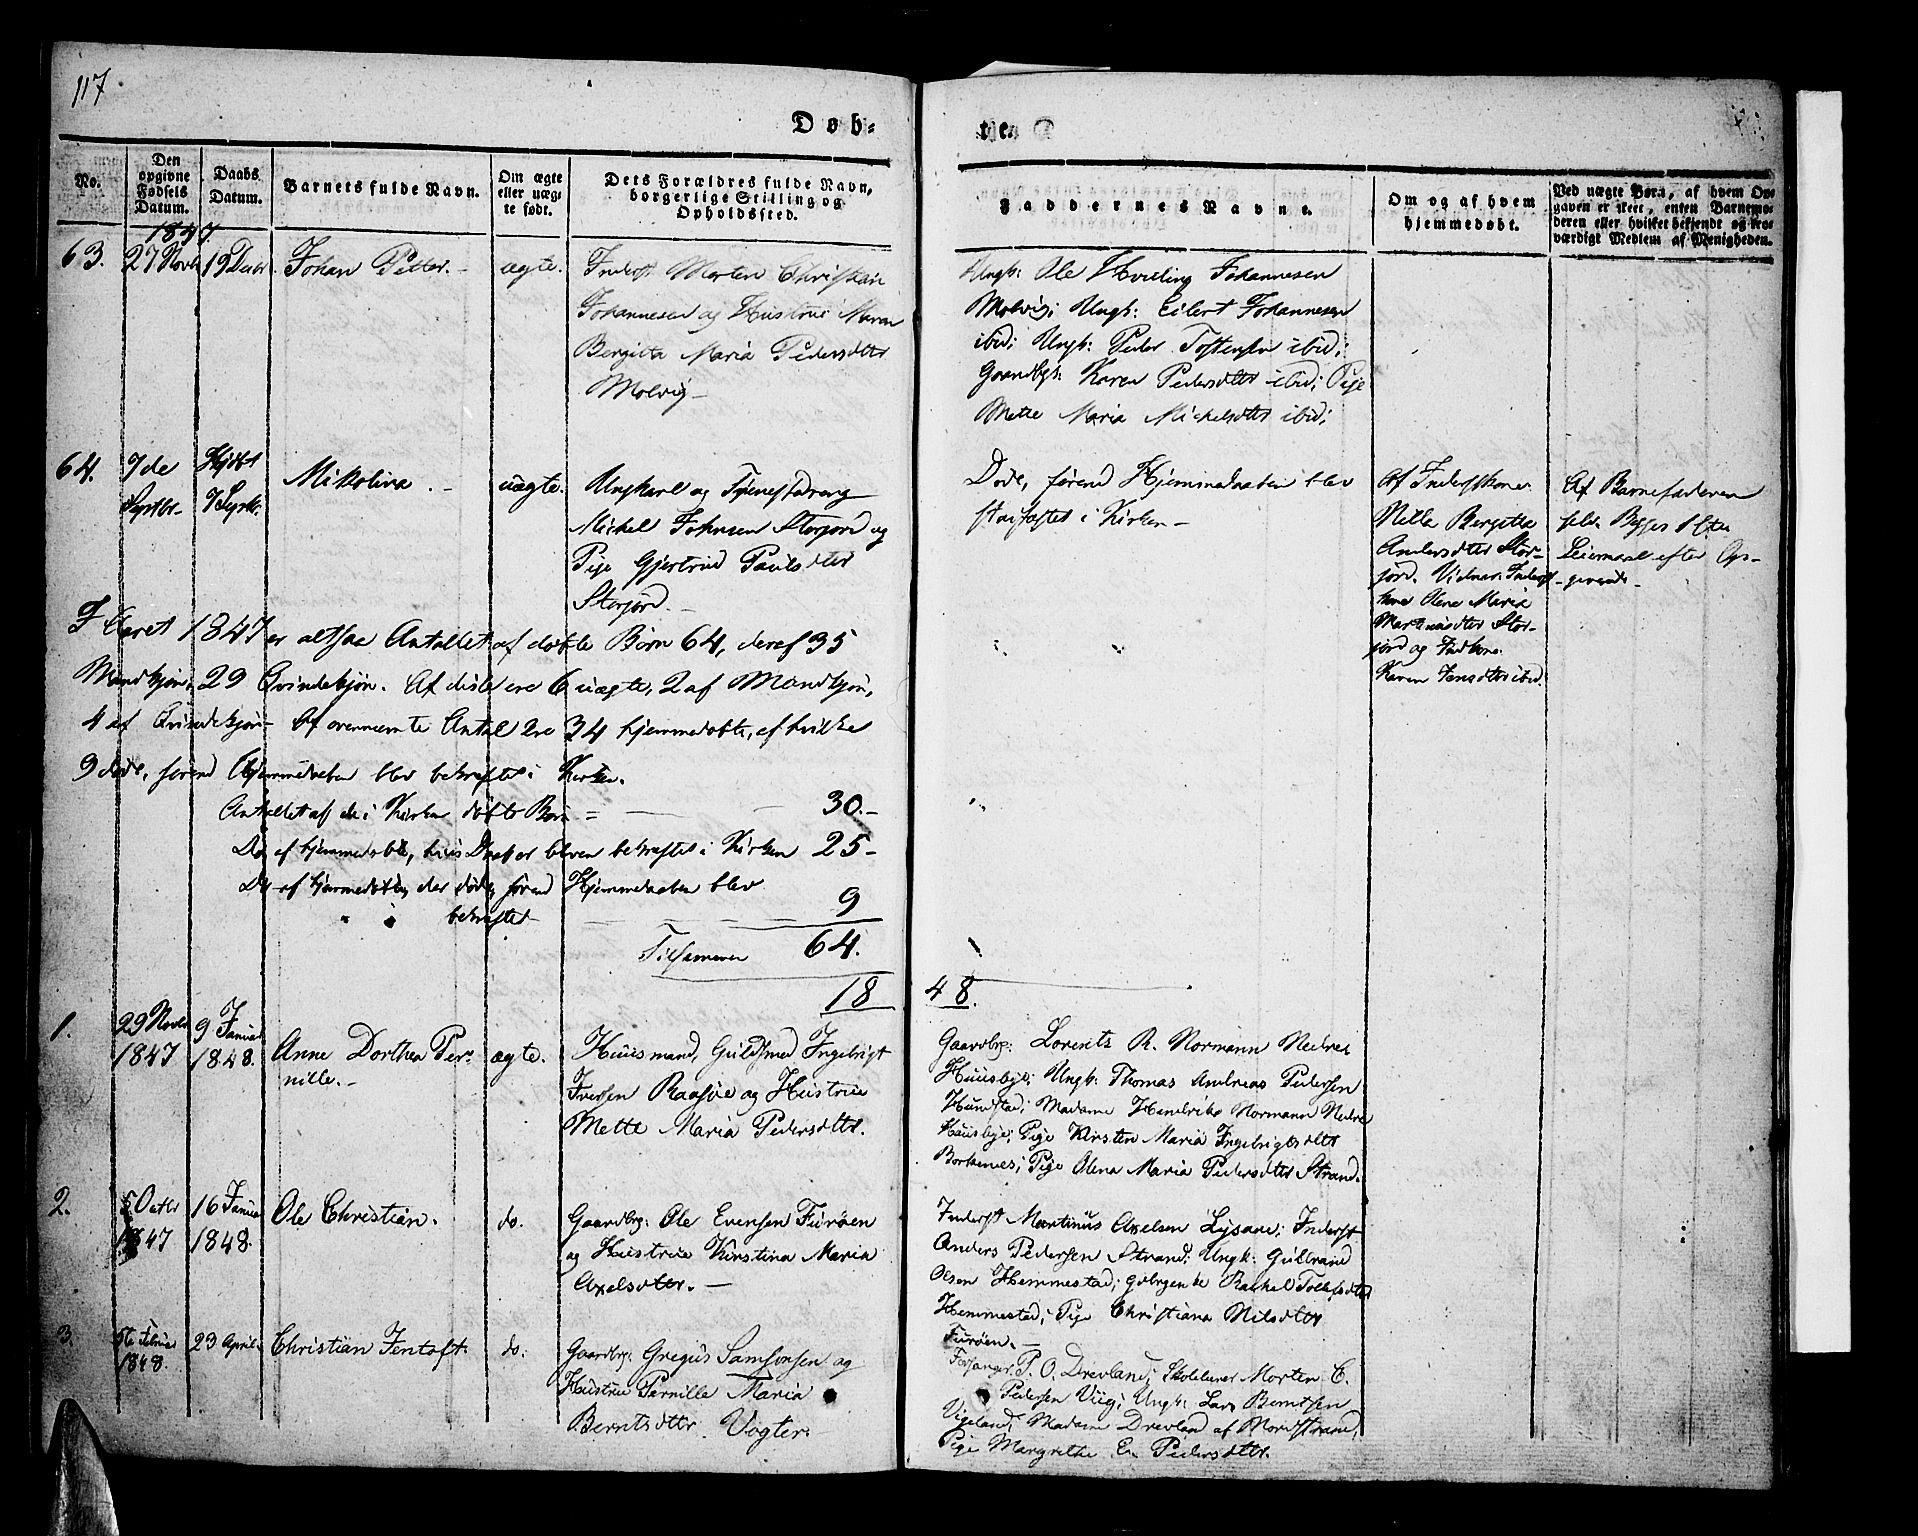 117
Døb-
te.
No.
Den opgivne Fødsels Datum.
Daabs Datum.
Barnets fulde Navn.
Om ægte eller uægte født.
Dets Forældres fulde Navn, borgerlige Stilling og Opholdssted.
Faddernes Navne.
Om og af hvem hjemmedøbt.
Ved uægte Børn, af hvem Opgaven er skeet, enten Barnemoderen eller hvilket bekjendt og troværdigt Medlem af Menigheden.
1847
63. 27 Novbr 19 Decbr Johan Petter. - ægte. Inderst Morten Christian
Johannesen og Hustrue Maren
Bergitta Maria Pedersdtter
Molvig -
Ungk: Ole Hvidling Johannesen
Molvig; Ungk: Eilert Johannesen
ibid; Ungk: Peder Tostensen ibid;
Gaardbgk: Karen Pedersdtter ibid; Pige
Mette Maria Mickelsdtter ibid;
64. 7de Septbr. Hjdbt 7 Septbr. Mikolina. - uægte. Ungkarl og Tjenestedreng
Mickel Johnsen Storjord og
Pige Gjertrud Paulsdtter
Storjord. -
Døde, førend Hjemmedaaben blev
stadfæstet i Kirken -
Af Inderstkone
Bergitta
Andersdtter Stor-
jord. Vidner: Inderst-
kone Olene Maria
Martinusdtter Stor-
jord og Indkone
Karen Jensdtter ibid.
Af Barnefaderen
Begges 1ste
Leiermaal efter Op-
givende -
I Aaret 1847 er altsaa Antallet af døbte Børn 64, deraf 35
Mandkjøn, 29 Qvindekjøn. Af disse ere 6 uægte, 2 af Mandkjøn,
4 af Qvindekjøn - Af ovennævnte Antal ere 34 hjemmedøbte, af hvilke
9 døde, førend Hjemmedaaben blev bekræftet i Kirken.
Antallet af de i Kirken døbte Børn = 30. -
Do af hjemmedøbte, hvis Daab er bleven bekræftet i Kirken 25 -
Do af hjemmedøbte, der døde, førend Hjemmedaaben blev
bekræftet - 9
Tilsammen 64.
18 48.
1. 29 Novbr 1847 9 Januar 1848. Anne Dorthea Per-
nille. - ægte. Huusmand, Guldsmed Ingebrigt
Iversen Raasøe og Hustrue
Mette Maria Pedersdtter.
Gaardbrg: Lorents R. Normann Nedre
Huusbye; Ungk: Thomas Andreas Pedersen
Hundstad; Madame Hendrike Normann Nedre
Huusbye; Pige Kirsten Maria Ingebrigtsdtter
Borkenes; Pige Olena Maria Pedersdtter Strand.
2. 5 Octbr 1847 16 Januar 1848. Ole Christian. do. Gaardbrg: Ole Evensen Furøen
og Hustrue Kirstina Maria
Axelsdtter. -
Inderst Martinus Axelsen Lysaae; Inderst
Anders Pedersen Strand; Ungk: Guldbrand
Olsen Hemmestad; Rachel Tollefsdtter
Hemmestad; Pige Christiana Nilsdtter
Furøen. -
3. 5te Februar 1848. 23 April. Christian Jentoft. do: Gaardbrg: Gregus Samsonsen og
Hustrue Pernille Maria
Berntsdtter. Vogter.
Forsanger P. O. Drevland; Skolelærer Morten C.
Pedersen Viig; Ungk: Lars Berntsen
Vigeland; Madam Drevland af Nordstrand;
Pige Margrethe Pedersdtter.